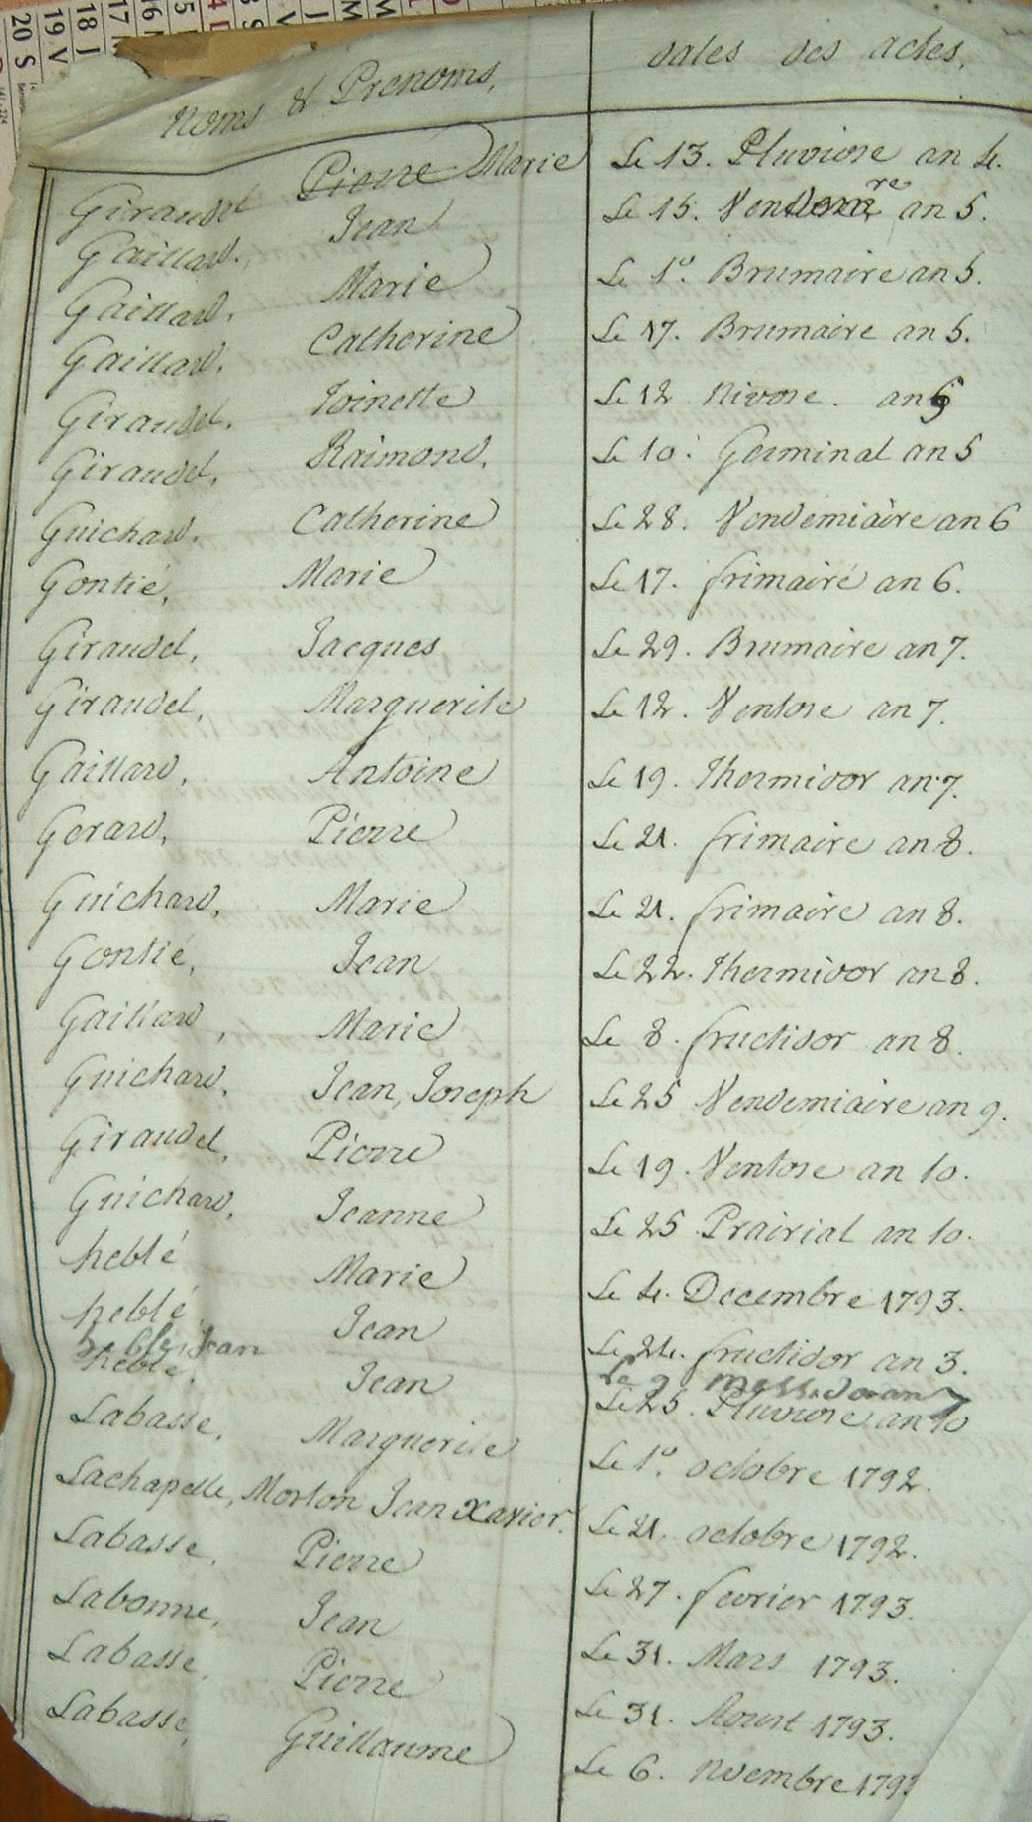 Noms & Prenoms, dates des actes,
Giraudel Pierre Marie Le 13. Pluviose an 4.
Gaillard. Jean Le 15. Vendemre an 5.
Gaillard, Marie Le 1o. Brumaire an 5.
Gaillard, Catherine Le 17. Brumaire an 5.
Giraudel, Toinette Le 12 Nivose. an 5
Giraudel, Raimond, Le 10. Germinal an 5
Guichard, Catherine Le 28. Vendemiaire an 6
Gontié, Marie Le 17. frimaire an 6.
Giraudel, Jacques Le 29. Brumaire an 7.
Giraudel, Marguerite Le 12. Ventose an 7.
Gaillard, Antoine Le 19. Thermidor an 7.
Gerard, Pierre Le 21. frimaire an 8.
Guichard, Marie Le 21. frimaire an 8.
Gontié, Jean Le 22. Thermidor an 8.
Gaillard, Marie Le 8. fructidor an 8.
Guichard, Jean, Joseph Le 25 Vendemiaire an 9.
Giraudel, Pierre Le 19. Ventose an 10.
Guichard, Jeanne Le 25 Prairial an 10.
heblé Marie Le 4. Decembre 1793.
heblé Jean Le 24. fructidor an 3.
Jean Le 9 messidor an 7
heblé, Jean Le 25. Pluviose an 10
Labasse, Marguerite Le 1o. octobre 1792.
Lachapelle, Morton Jean Xavier. Le 21. octobre 1792.
Labasse, Pierre Le 27. fevrier 1793.
Labonne, Jean Le 31. Mars 1793.
Labasse, Pierre Le 31. Aoust 1793.
Labasse, Guillaume Le 6. Novembre 1793